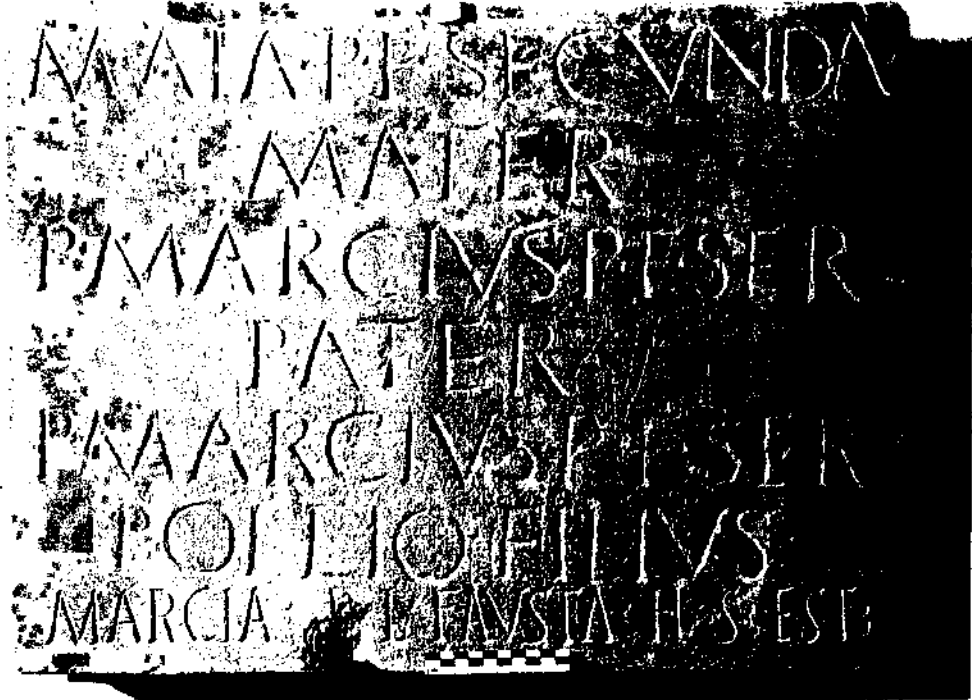 MAIA P F SECVNDA
MATER
P MARCIVS P F SER
PATER
P MARCIVS P F SER
POLLIO FILIVS
MARCIA L FAVSTA H S EST